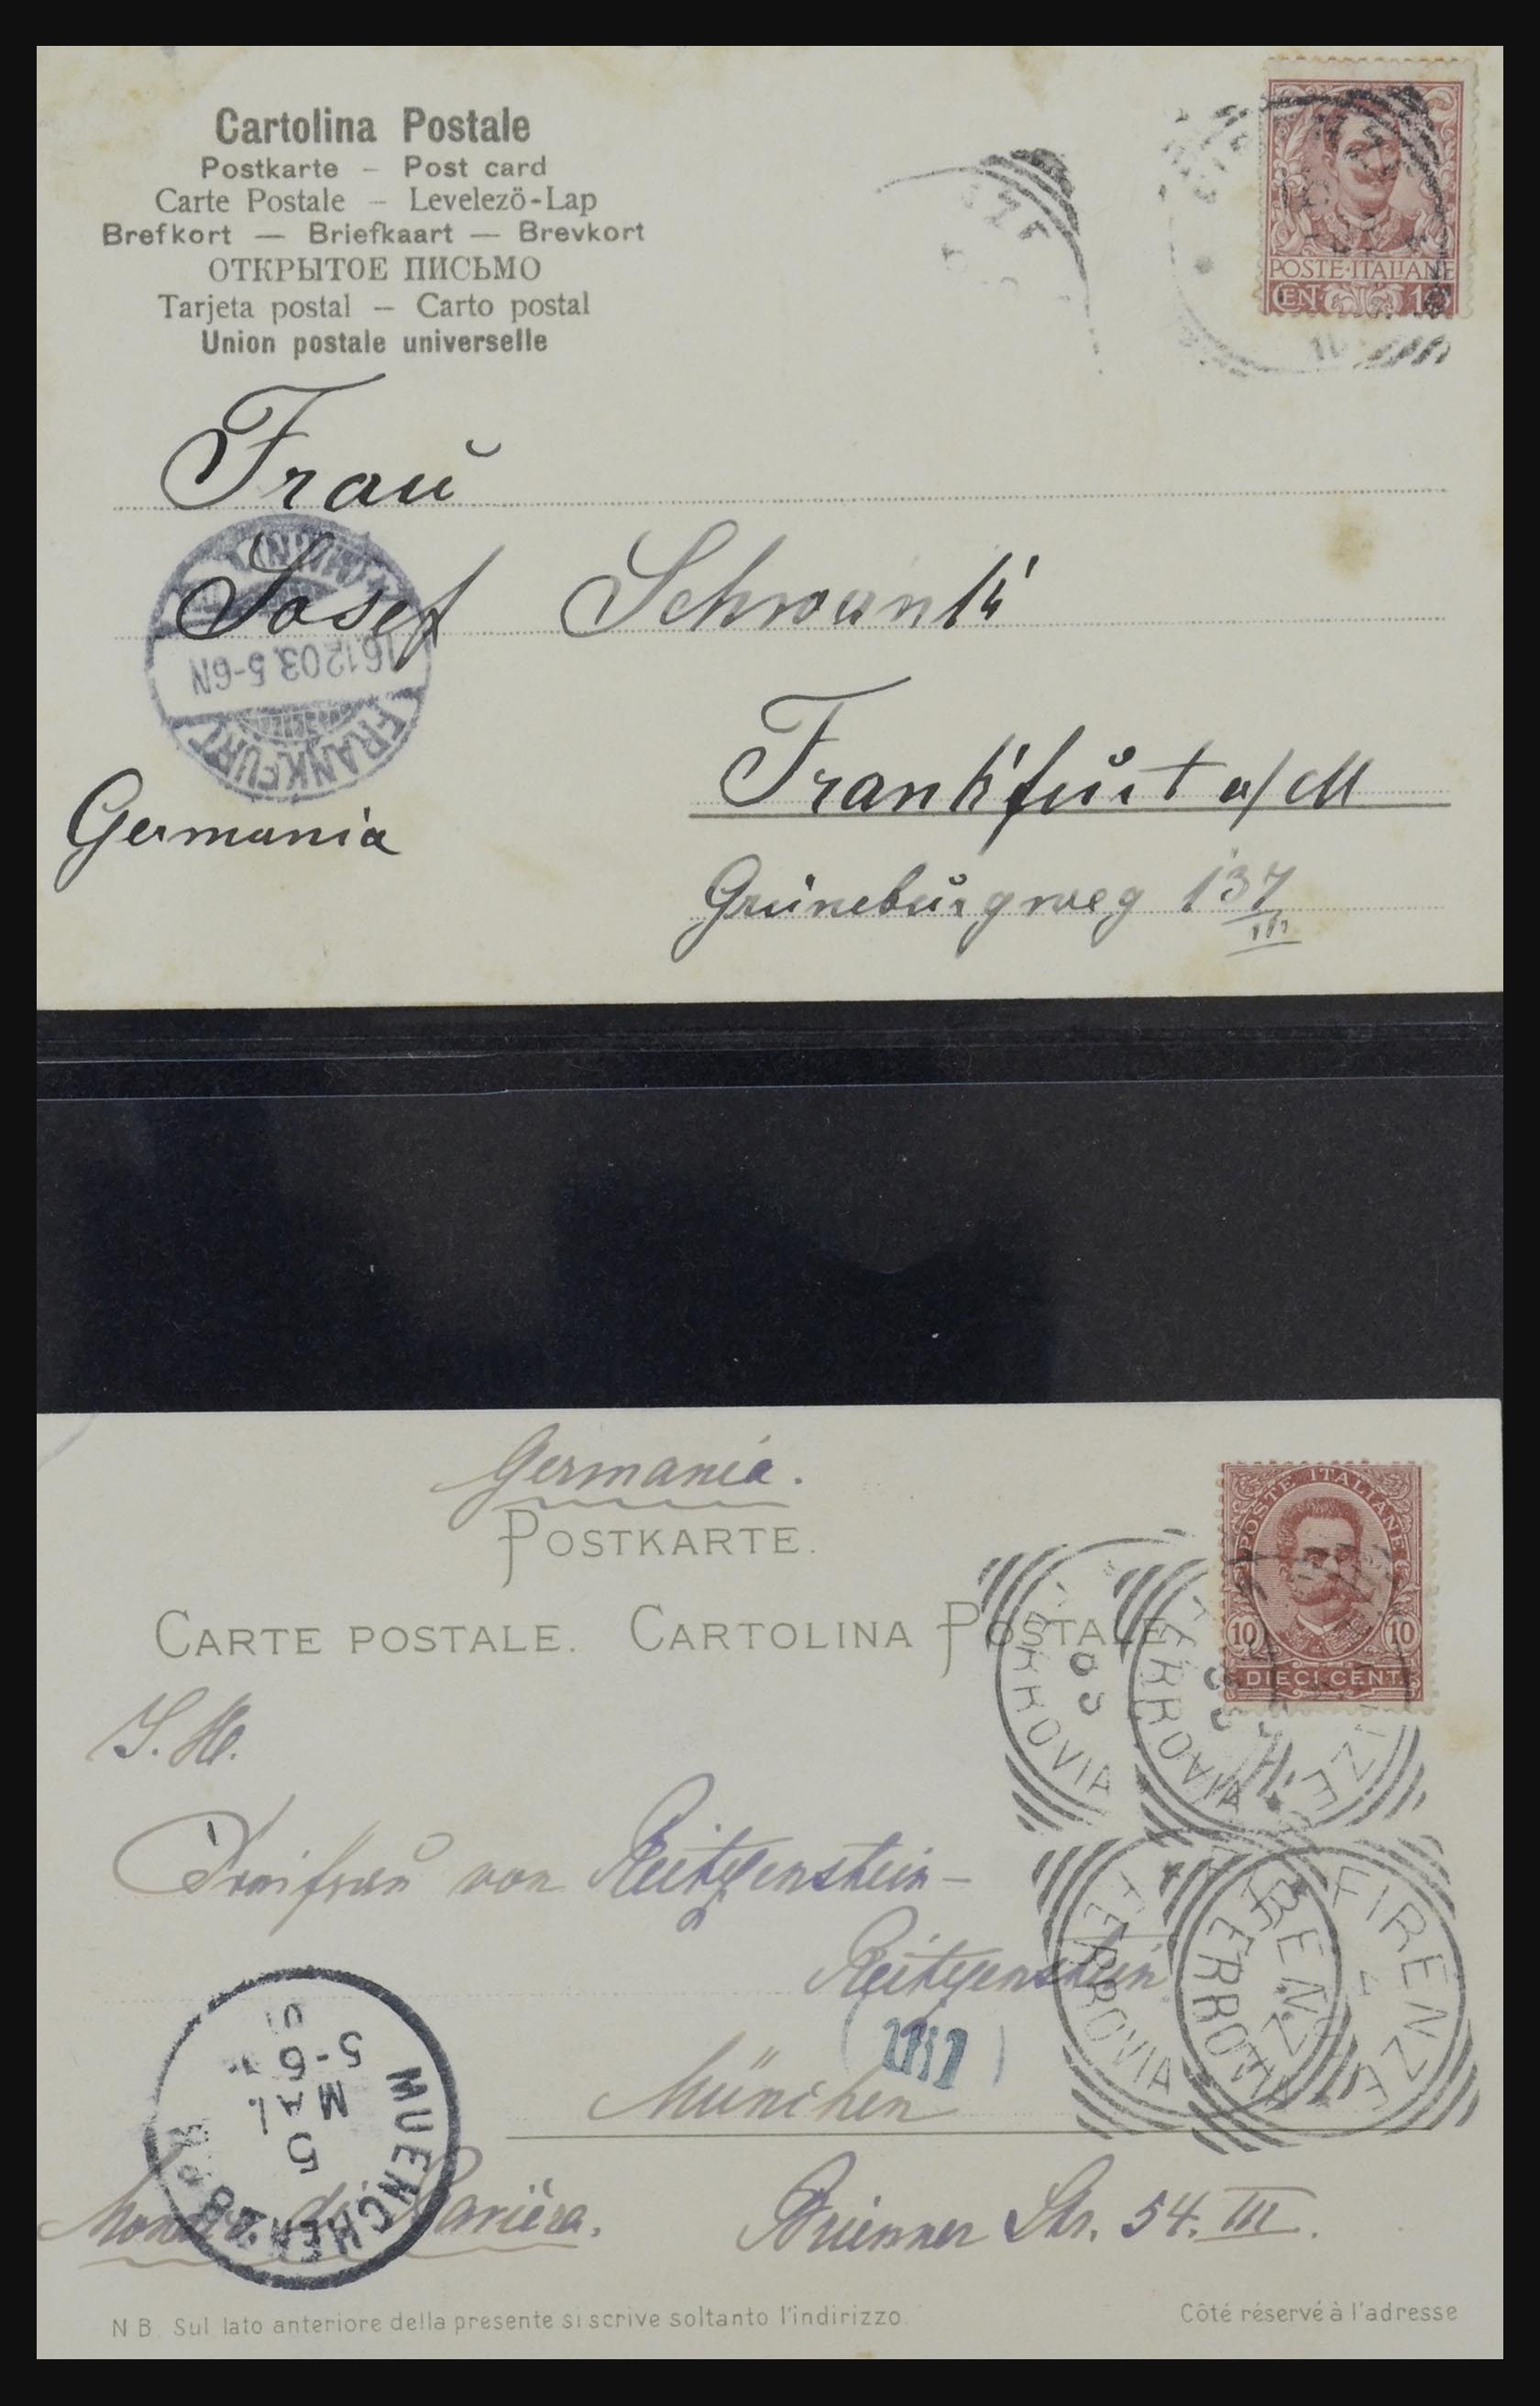 Cartolina Postale
Postkarte – Post card
Carte Postale – Levelezö-Lap
Brefkort — Briefkaart — Brevkort
ОТКРЫТОЕ ПИСЬМО
Tarjeta postal – Carto postal
Union postale universelle
POSTE·ITALIANE
CENT 10
Fraŭ
Josef Schwank
FRANKFURT
16.12.03. 5-6N
(MAIN)
Frankfŭrt a/M
Germania
Grünebŭrgweg 137
III
Germania.
POSTKARTE.
CARTE POSTALE. CARTOLINA POSTALE
POSTE ITALIANE
10 10
DIECI CENT.
FERROVIA
FERROVIA
FIRENZE
FERROVIA
FERROVIA
I. H.
Freifraŭ von Reitzenstein-
Reitzenstein
München
MUENCHEN
5
MAI
5-6
01
Monaco di Baviera.
Brienner Str. 54. III.
N B. Sul lato anteriore della presente si scrive soltanto l'indirizzo.
Côté réservé à l'adresse